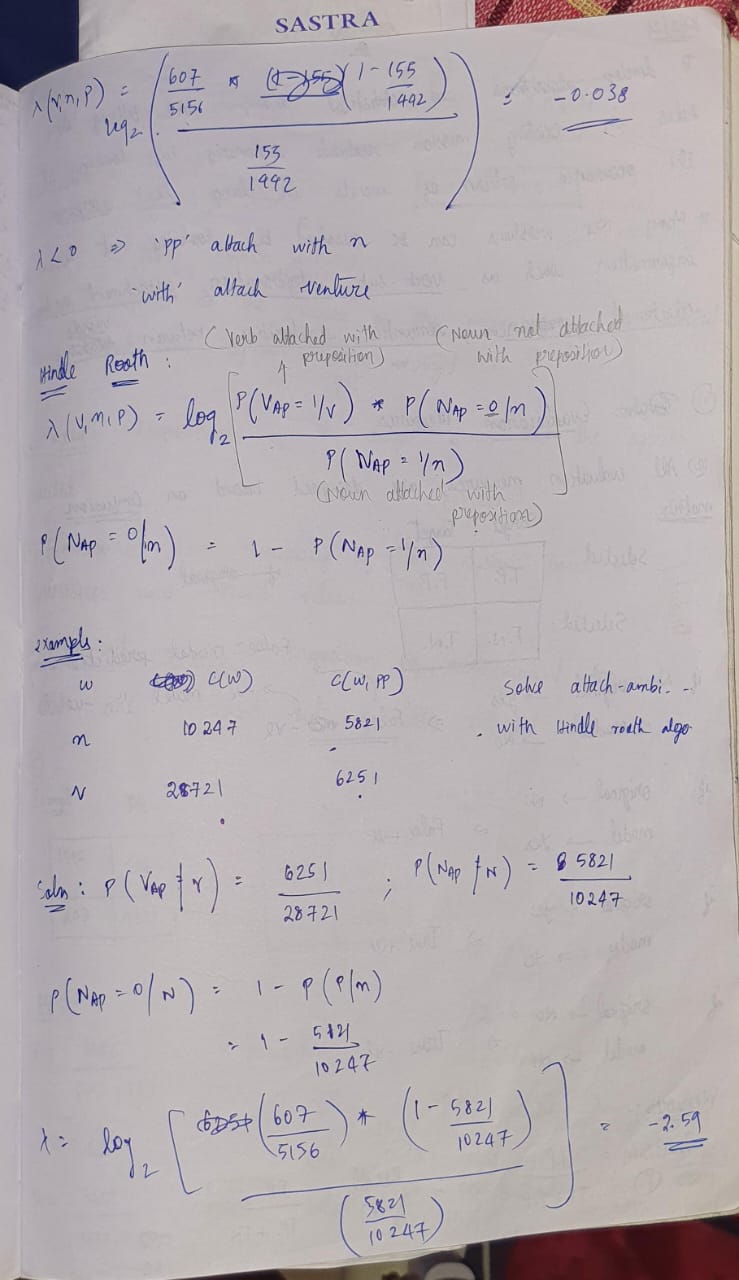 SASTRA
λ(v,n,p) = log₂ ( 607/5156 * (1 - 155/1492) / 155/1492 ) = -0.038
λ<0 ⇒ 'pp' attach with n
'with' attach venture
(Verb attached with preposition) (Noun not attached with preposition)
Hindle Rooth :
λ(V,n,P) = log₂ [ P(V_AP = 1/v) * P(N_AP = 0/n) / P(N_AP = 1/n) ]
(Noun attached with preposition)
P(N_AP = 0/n) = 1 - P(N_AP = 1/n)
example :
w C(W) C(W, PP) solve attach-ambi. -
n 10247 5821 . with Hindle rooth algo.
N 28721 6251
Soln : P(V_AP / v) = 6251/28721 ; P(N_AP / N) = 5821/10247
P(N_AP = 0/N) = 1 - P(P/n)
= 1 - 5821/10247
λ = log₂ [ (607/5156) * (1 - 5821/10247) / (5821/10247) ] = -2.59